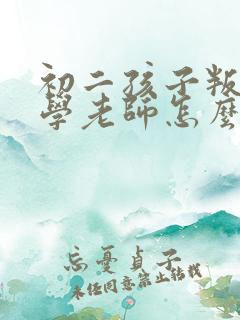 初二孩子叛
學老師怎麼
忘憂貞子
未經同意禁止轉載